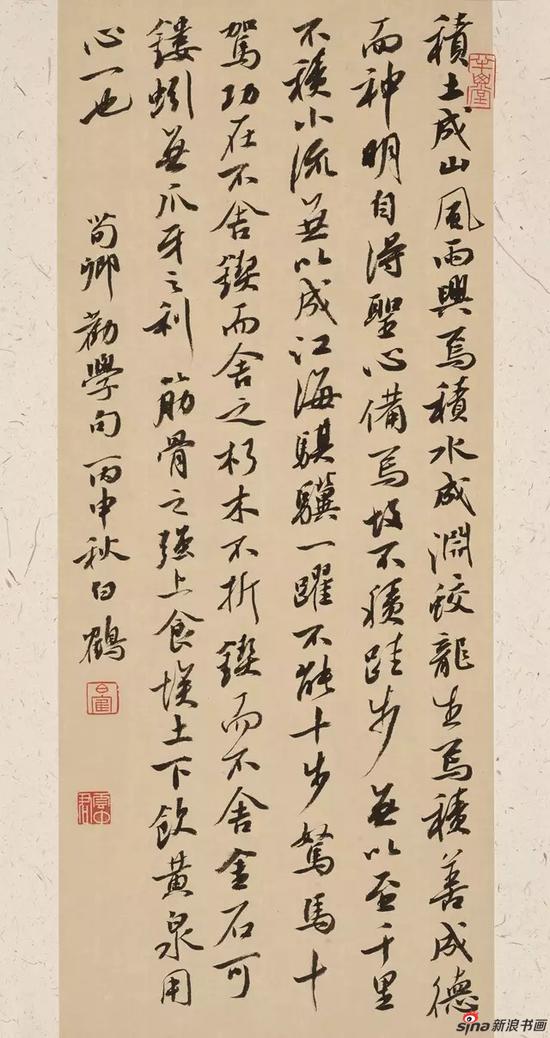 積土成山風雨興焉積水成淵蛟龍生焉積善成德
而神明自得聖心備焉故不積跬步無以至千里
不積小流無以成江海騏驥一躍不能十步駑馬十
駕功在不舍鍥而舍之朽木不折鍥而不舍金石可
鏤蚓無爪牙之利筋骨之强上食埃土下飲黃泉用
心一也
荀卿勸學句丙申秋白鶴
sina新浪书画